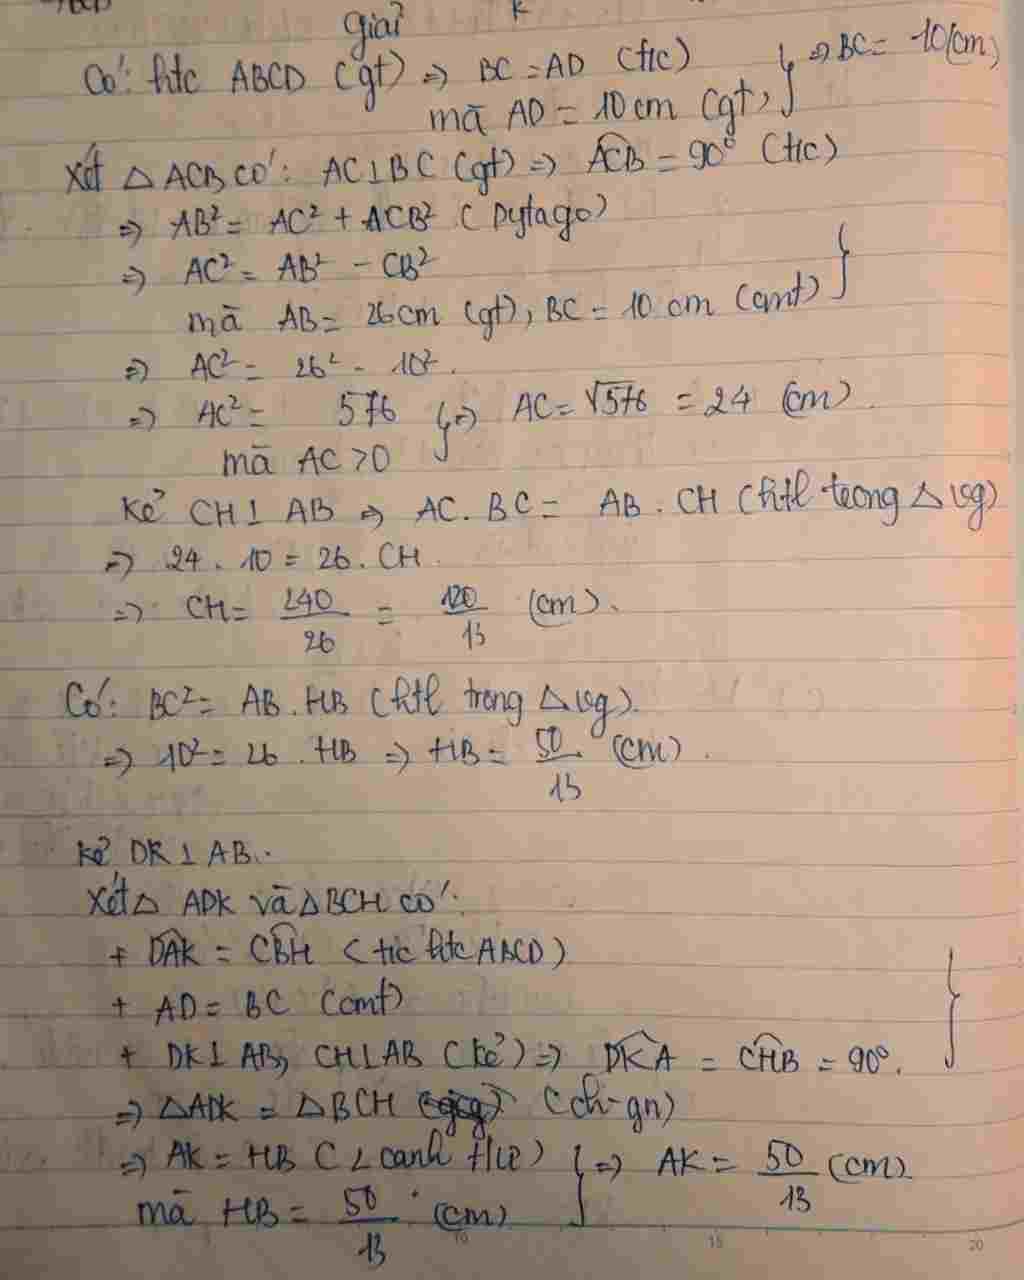 K
Giải
Có: htc ABCD (gt) => BC = AD (t/c) } => BC = 10 (cm)
mà AD = 10 cm (gt)
Xét △ ACB có: AC ⊥ BC (gt) => ACB = 90° (t/c)
=> AB² = AC² + ACB² (pytago)
=> AC² = AB² - CB² }
mà AB = 26 cm (gt), BC = 10 cm (cmt)
=> AC² = 26² - 10².
=> AC² = 576 } => AC = √576 = 24 (cm).
mà AC > 0
Kẻ CH ⊥ AB => AC . BC = AB . CH (htl trong △ vg)
=> 24 . 10 = 26 . CH.
=> CH = 240/26 = 120/13 (cm).
Có: BC² = AB . HB (htl trong △ vg).
=> 10² = 26 . HB => HB = 50/13 (cm).
Kẻ DK ⊥ AB.
Xét △ ADK và △ BCH có:
+ DAK = CBH (t/c htc ABCD) }
+ AD = BC (cmt)
+ DK ⊥ AB, CH ⊥ AB (kẻ) => DKA = CHB = 90°.
=> △ADK = △BCH (ch-gn)
=> AK = HB (2 cạnh t/ứ) } => AK = 50/13 (cm)
mà HB = 50/13 (cm)
10 15 20